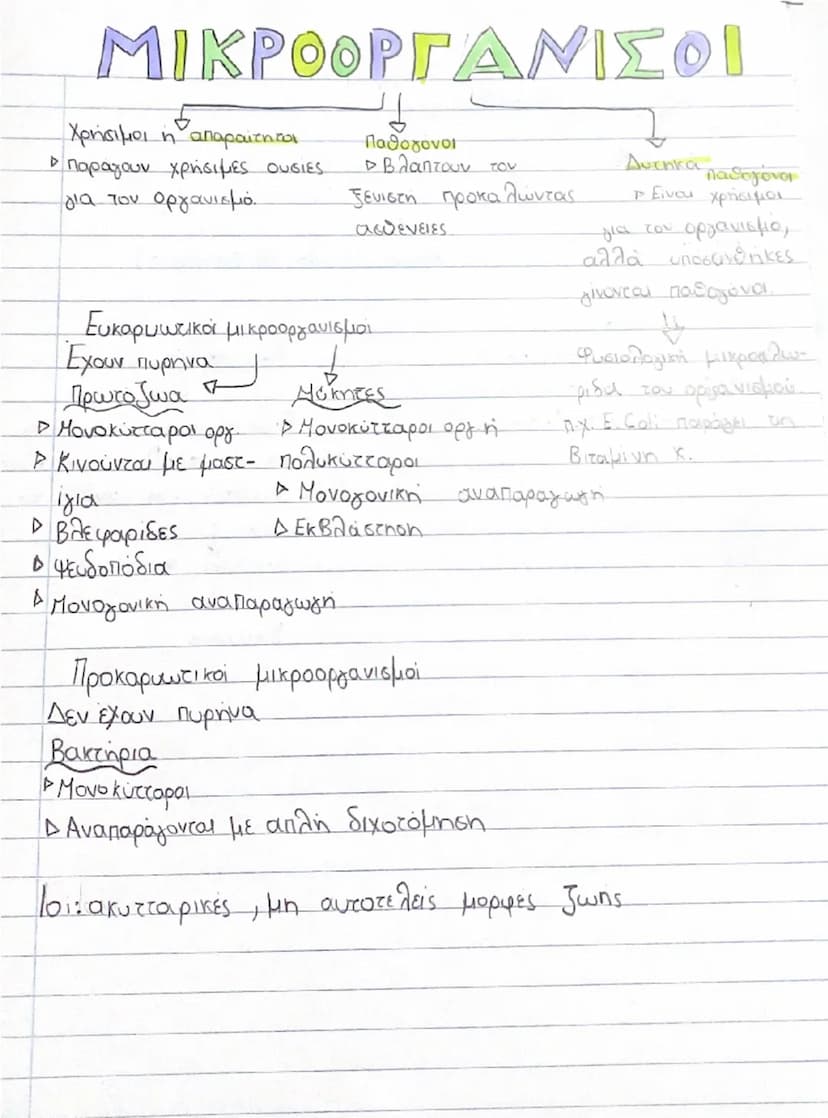 ΜΙΚΡΟΟΡΓΑΝΙΣΟΙ
Χρήσιμοι ή απαραίτητοι
▷ παράγουν χρήσιμες ουσίες
για τον οργανισμό.
Παθογόνοι
▷ Βλάπτουν τον
ξενιστή προκαλώντας
ασθένειες
Δυνητικά παθογόνοι
▷ Είναι χρήσιμοι
για τον οργανισμό,
αλλά υπό συνθήκες
γίνονται παθογόνοι.
Φυσιολογική μικροχλω-
ρίδα του οργανισμού
π.χ. E. Coli παράγει τη
Βιταμίνη Κ.
Ευκαρυωτικοί μικροοργανισμοί
Έχουν πυρήνα
Πρωτόζωα
▷ Μονοκύτταροι οργ.
▷ Κινούνται με μαστ-
ίγια
▷ Βλεφαρίδες
▷ Ψευδοπόδια
▷ Μονογονική αναπαραγωγή
Μύκητες
▷ Μονοκύτταροι οργ ή
πολυκύτταροι
▷ Μονογονική αναπαραγωγή
▷ Εκβλάστηση
Προκαρυωτικοί μικροοργανισμοί
Δεν έχουν πυρήνα
Βακτήρια
▷ Μονοκύτταροι
▷ Αναπαράγονται με απλή διχοτόμηση
Ιοι: ακυτταρικές, μη αυτοτελείς μορφες ζωής